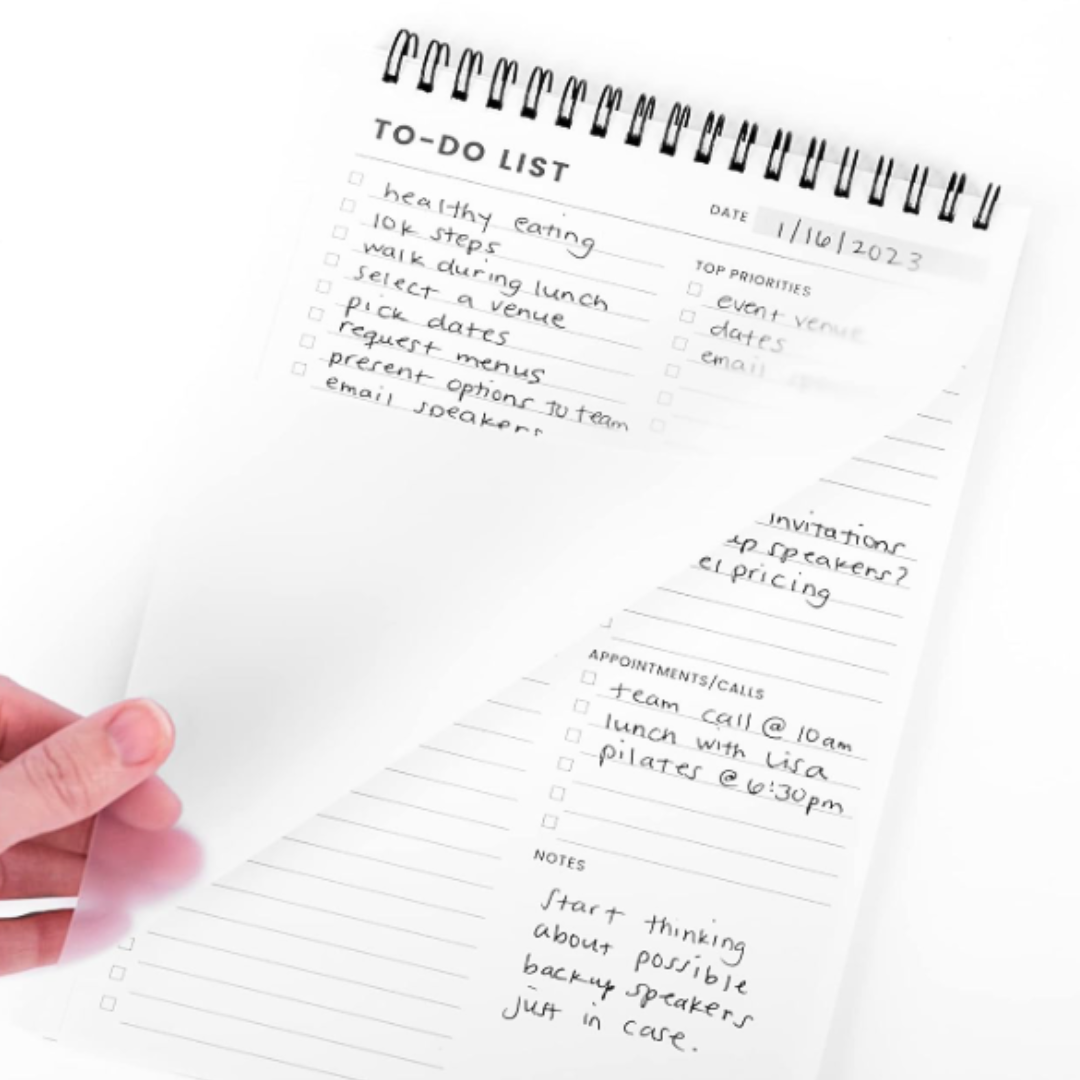 TO-DO LIST
healthy eating
10k steps
walk during lunch
select a venue
pick dates
request menus
present options to team
email speakers
DATE 1/16/2023
TOP PRIORITIES
event venue
dates
email
invitations
speakers?
pricing
APPOINTMENTS/CALLS
team call @ 10am
lunch with Lisa
pilates @ 6:30pm
NOTES
Start thinking
about possible
backup speakers
just in case.